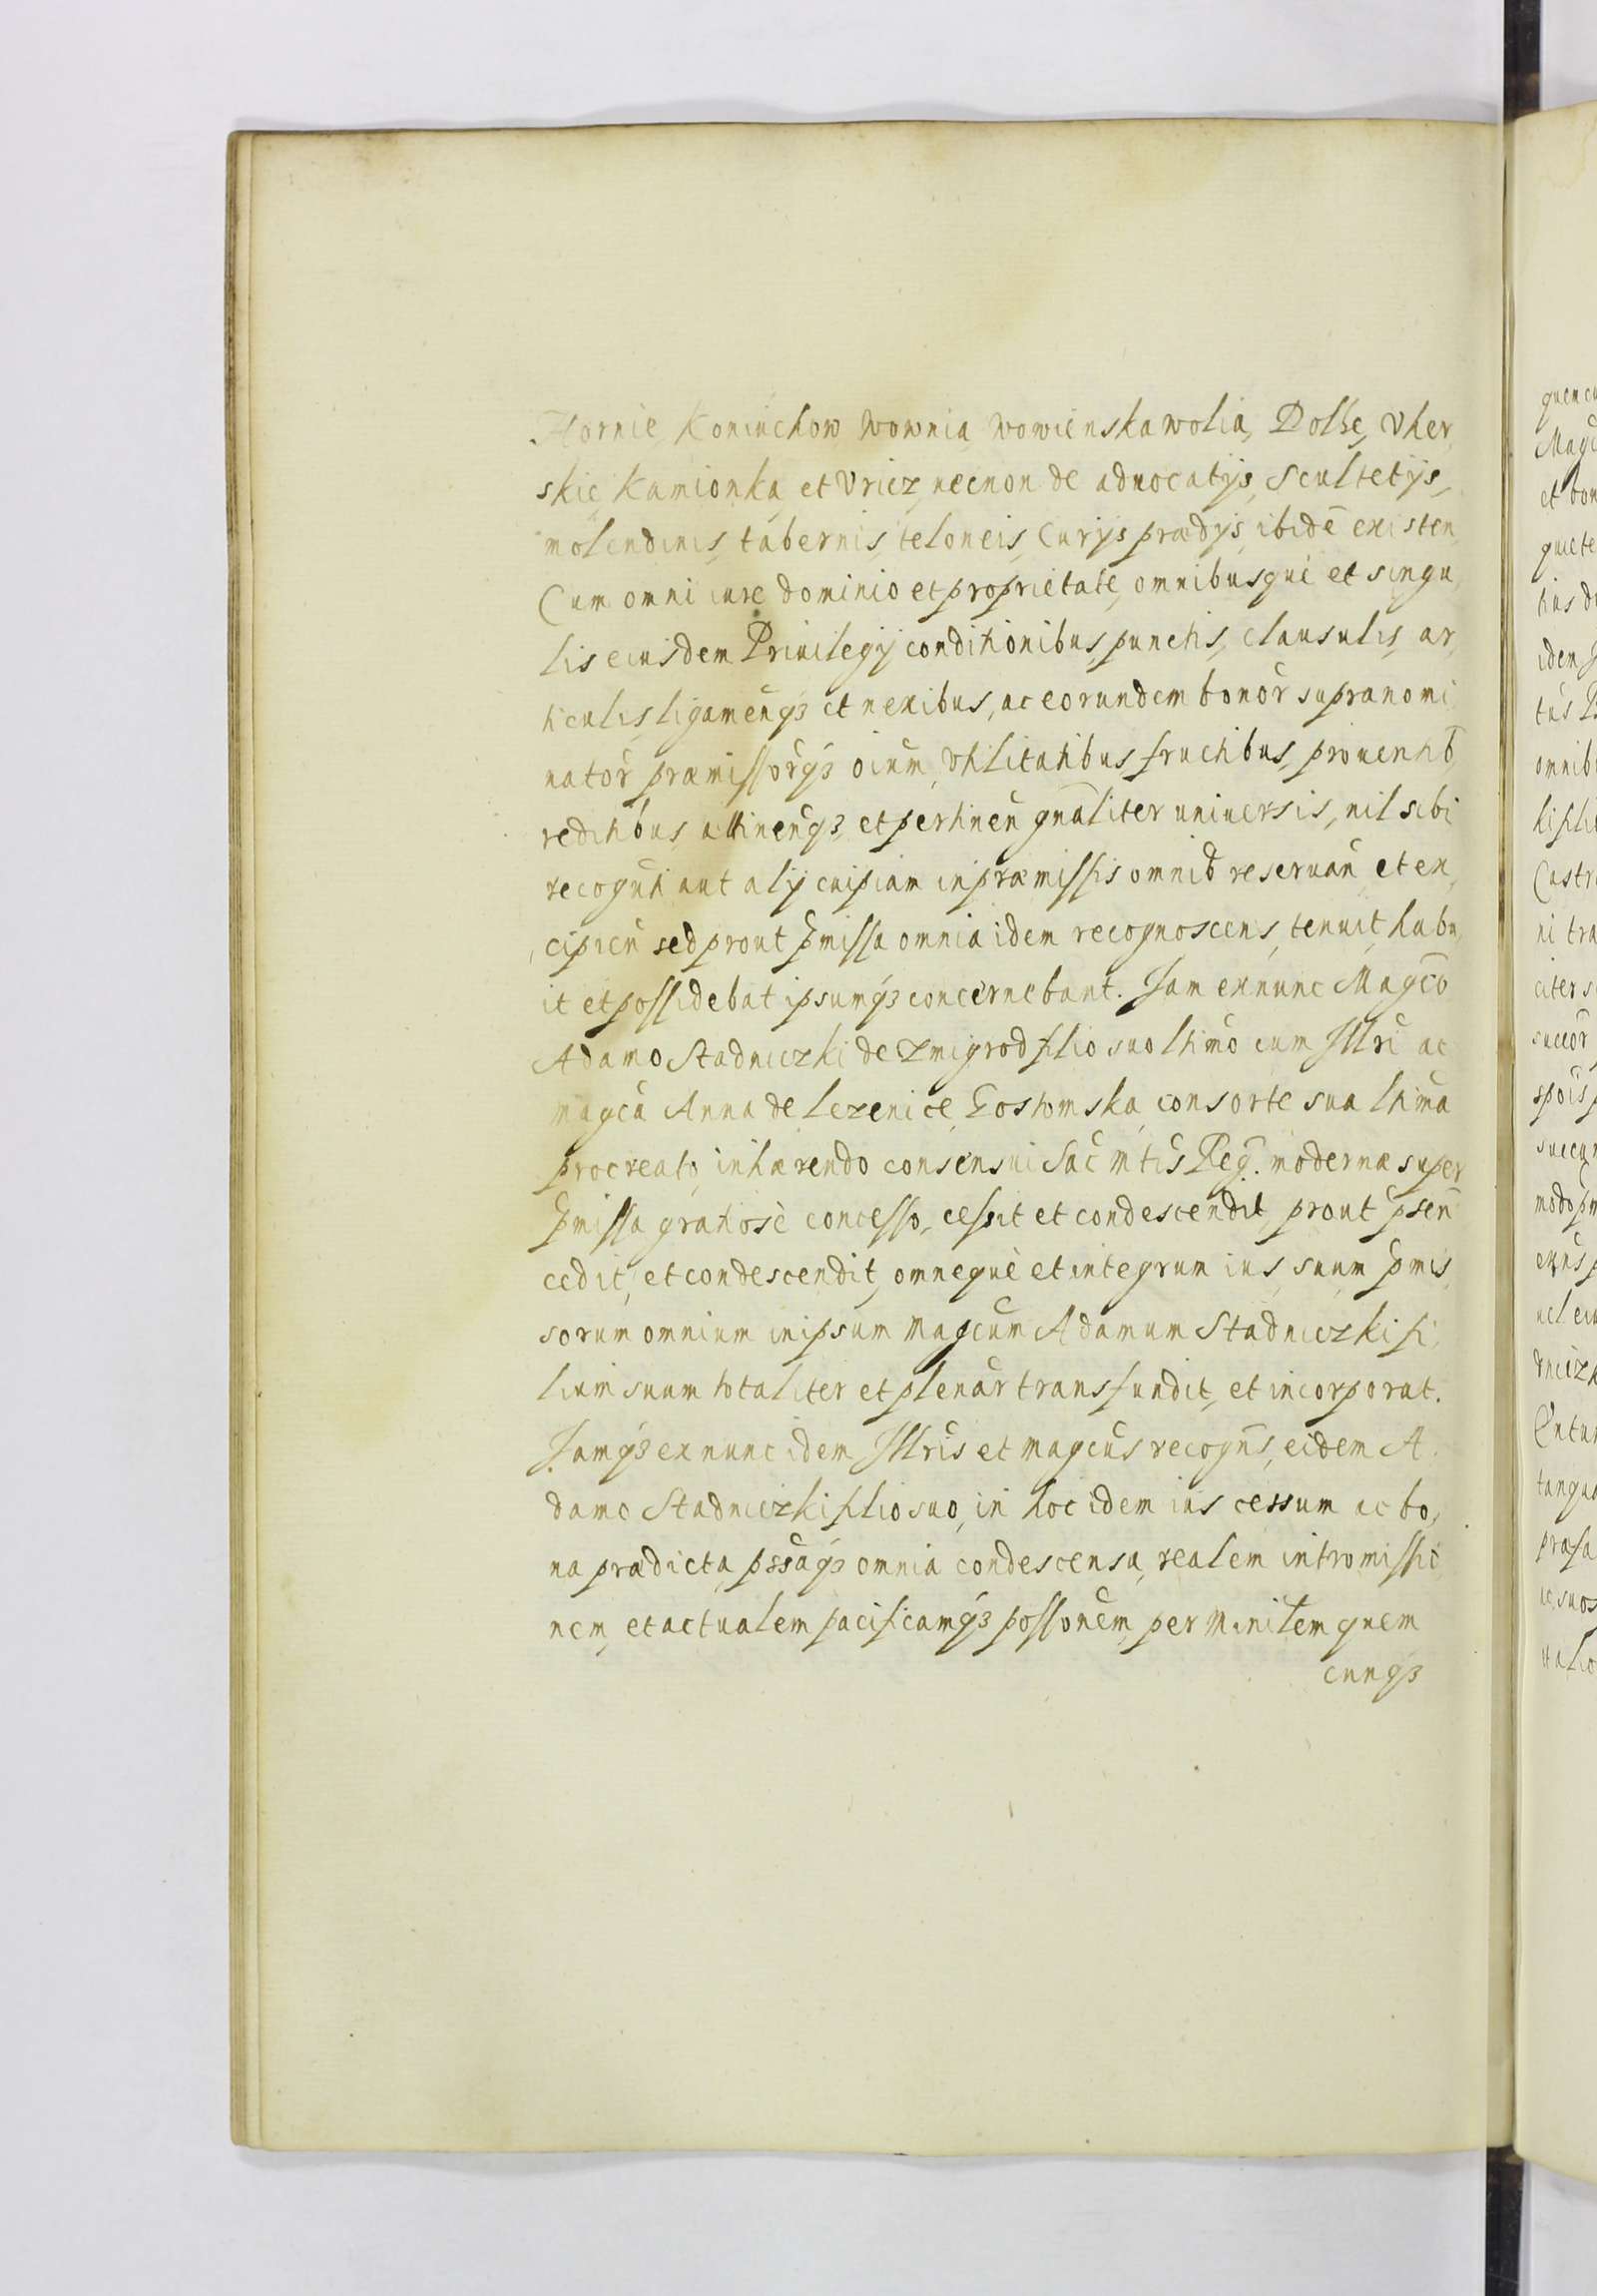 Hornie Koniuchow Wownia Wowienska wolia, Dolhe, Vher
skie, Kamionka, et Vricz, necnon de aduocatijs, Scultetijs,
molendinis, tabernis, teloneis, Curijs prædijs, ibidē existen,
Cum omni iure dominio et proprietate, omnibusquè et singu
lis eiusdem Priuilegij conditionibus, punctis, clausulis, ar,
ticulis, ligamen̄qꝫ et nexibus, ac eorundem bonor̄ supranomi
nator̄ præmissor̄qꝫ oīum, vtilitatibus fructibus, prouentib,
reditibus attinen̄qꝫ et pertinen̄ gnāliter uniuersis, nil sibi
recogn̄ti aut alij cuipiam in præmissis omnib reseruan̄ et ex,
cipien̄ sed prout p̄missa omnia idem recognoscens, tenuit, habu
it et possidebat ipsumqꝫ concernebant. Jam exnunc Magc̄o
Adamo Stadniczki de Zmigrod filio suo lt̄imo cum Jllri ac
magc̄a Anna de Lezenice, Gostomska, consorte sua lt̄ima
procreato, inhærendo consensui Sac̄ Mtīs Reḡ. modernæ super
p̄missa gratiosè concesso, cessit et condescendit, prout p̄sen̄
cedit, et condescendit, omnequè et integrum ius, suum p̄mis
sorum omnium in ipsum Magcūm Adamum Stadniczki fi
lium suum totaliter et plenār transfundit, et incorporat.
Jamqꝫ exnunc idem Jllris et magcūs recogn̄s, eidem A
damo Stadniczki filio suo, in hoc idem ius cessum ac bo,
na prædicta, p̄ssaqꝫ omnia condescensa, realem intromissio
nem, et actualem pacificamqꝫ possonēm, per Minīlem quem
cunqꝫ